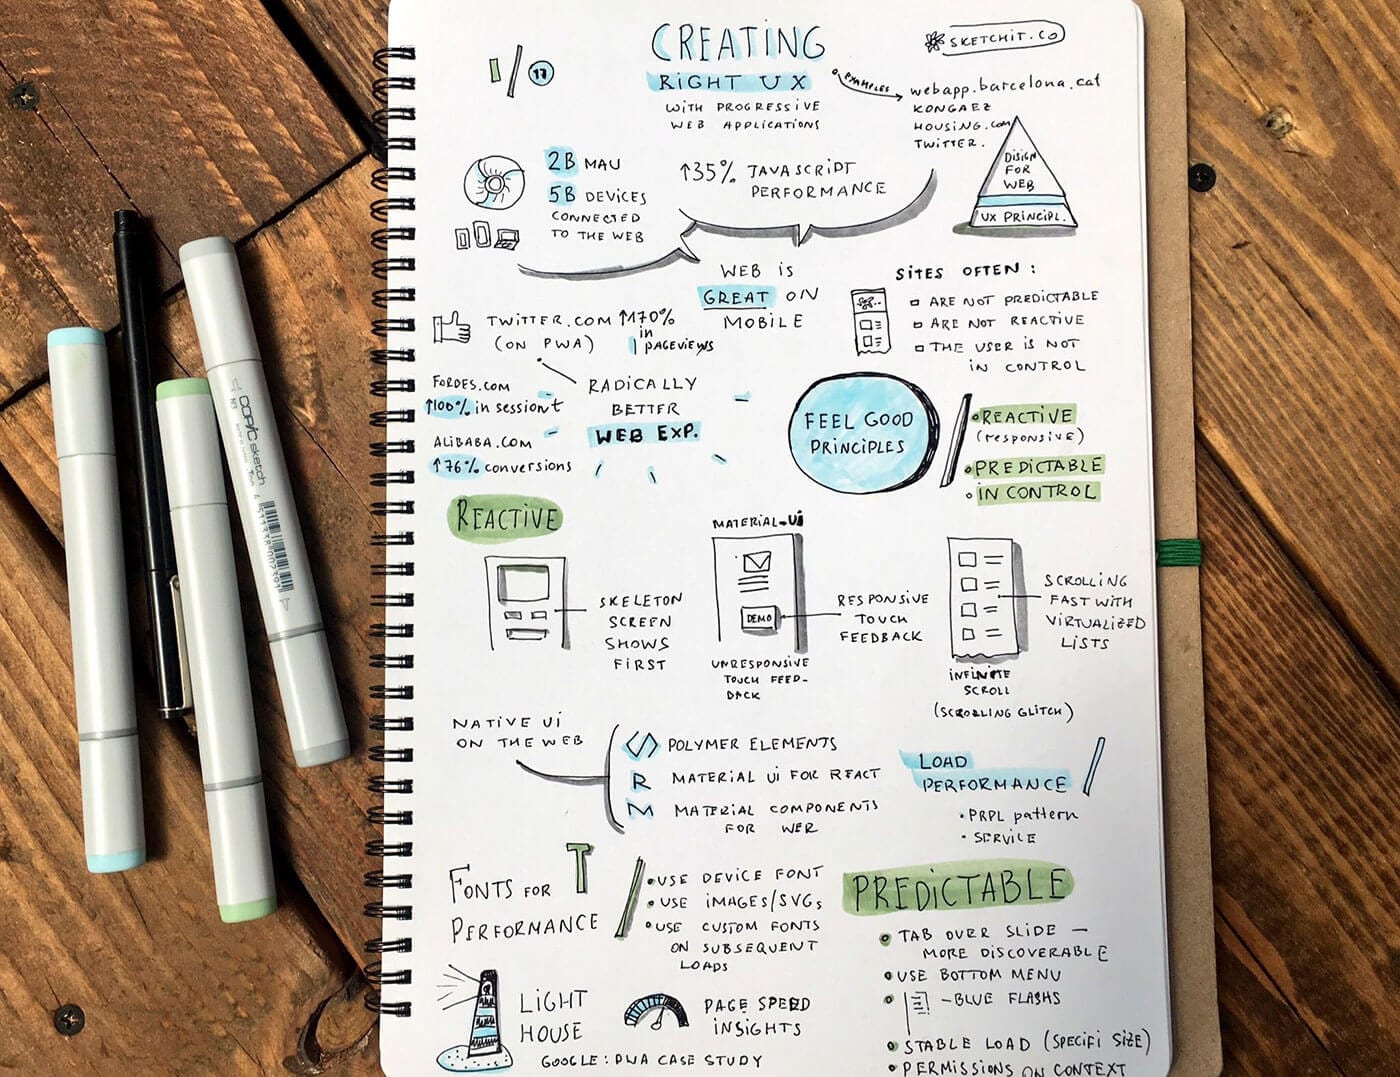 1/17
CREATING
RIGHT UX
WITH PROGRESSIVE
WEB APPLICATIONS
SKETCHIT.CO
EXAMPLES
webapp.barcelona.cat
KONGAEZ
HOUSING.com
TWITTER.
DISIGN
FOR
WEB
UX PRINCIPL.
2B MAU
5B DEVICES
CONNECTED
TO THE WEB
↑35% JAVASCRIPT
PERFORMANCE
WEB IS
GREAT ON
MOBILE
SITES OFTEN:
ARE NOT PREDICTABLE
ARE NOT REACTIVE
THE USER IS NOT
IN CONTROL
TWITTER.COM ↑170%
(ON PWA)
in
pageviews
FORDES.COM
↑100% in sessiont
ALIBABA.COM
↑76% conversions
RADICALLY
BETTER
WEB EXP.
FEEL GOOD
PRINCIPLES
REACTIVE
(responsive)
PREDICTABLE
IN CONTROL
REACTIVE
SKELETON
SCREEN
SHOWS
FIRST
MATERIAL-Ui
DEMO
UNRESPONSIVE
TOUCH FEED-
BACK
RESPONSIVE
TOUCH
FEEDBACK
INFINITE
SCROLL
(SCROLLING GLITCH)
SCROLLING
FAST WITH
VIRTUALIZED
LISTS
NATIVE Ui
ON THE WEB
POLYMER ELEMENTS
R MATERIAL Ui FOR REACT
M MATERIAL COMPONENTS
FOR WER
LOAD
PERFORMANCE
• PRPL pattern
• SERVICE
FONTS FOR
PERFORMANCE
T
• USE DEVICE FONT
• USE IMAGES/SVGs
• USE CUSTOM FONTS
ON SUBSEQUENT
LOADS
PREDICTABLE
TAB OVER SLIDE —
MORE DISCOVERABLE
USE BOTTOM MENU
– BLUE FLASHS
STABLE LOAD (SPECIFI SIZE)
PERMISSIONS ON CONTEXT
LIGHT
HOUSE
PAGE SPEED
INSIGHTS
GOOGLE: PWA CASE STUDY
COPIC sketch